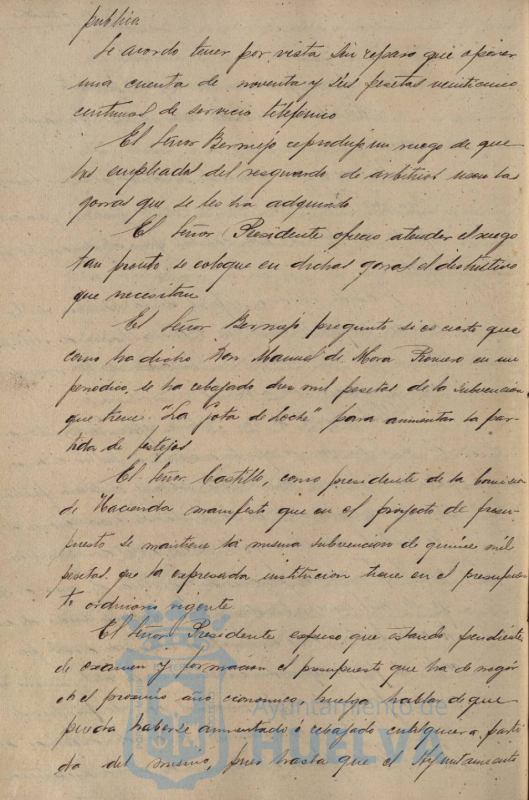 publica
Se acordo tener por vista sin reparo que oponer
una cuenta de noventa y seis pesetas veinticinco
centimos de servicio telefonico
El Señor Bermejo reprodujo un ruego de que
los empleados del resguardo de arbitrios usen las
gorras que se les ha adquirido
El Señor Presidente ofrecio atender el ruego
tan pronto se coloque en dichas gorras el distintivo
que necesitan
El Señor Bermejo pregunto si es cierto que
como ha dicho Don Manuel de Mora Romero en un
periodico, se ha rebajado dos mil pesetas de la subvencion
que tiene "La Gota de Leche" para aumentar la par-
tida de festejos
El Señor Castillo, como presidente de la Comision
de Hacienda manifesto que en el proyecto de presu-
puesto se mantiene la misma subvencion de quince mil
pesetas que la expresada institucion tiene en el presupues-
to ordinario vigente
El Señor Presidente expuso que estando pendiente
de examen y formacion el presupuesto que ha de regir
en el proximo año economico, huelga hablar de que
pueda haberse aumentado ó rebajado cualquiera parti-
da del mismo, pues hasta que el Ayuntamiento
Ayuntamiento de
HUELVA